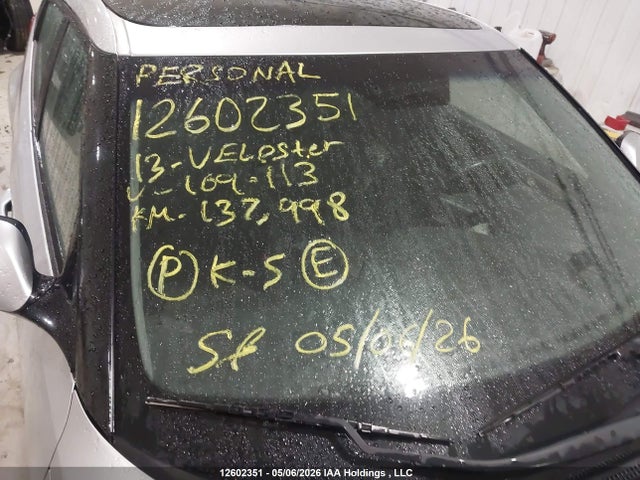 PERSONAL
12602351
13-VELOSTER
V-169-113
KM-137,998
P K-5 E
SF 05/06/26
12602351 - 05/06/2026 IAA Holdings , LLC